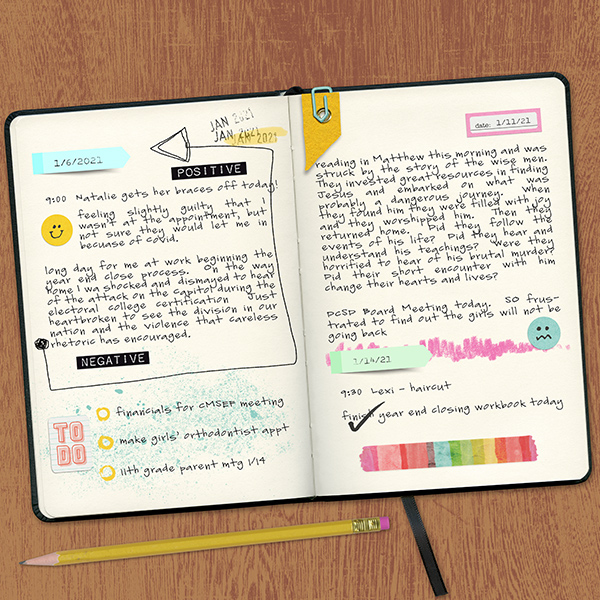 JAN 2021
JAN 2021
JAN 2021
1/6/2021
POSITIVE
9:00 Natalie gets her braces off today!
feeling slightly guilty that I
wasn't at the appointment, but
not sure they would let me in
becuase of covid.
long day for me at work beginning the
year end close process. On the way
home I was shocked and dismayed to hear
of the attack on the capitol during the
electoral college certification Just
heartbroken to see the division in our
nation and the violence that careless
rhetoric has encouraged.
NEGATIVE
TO
DO
financials for CMSEF meeting
make girls' orthodontist appt
11th grade parent mtg 1/14
date: 1/11/21
reading in Matthew this morning and was
struck by the story of the wise men.
They invested great resources in finding
Jesus and embarked on what was
probably a dangerous journey. When
they found him they were filled with joy
and they worshipped him. Then they
returned home. Did they follow the
events of his life? Did they hear and
understand his teachings? Were they
horrified to hear of his brutal murder?
Did their short encounter with him
change their hearts and lives?
DCSD Board Meeting today. SO frus-
trated to find out the girls will not be
going back
1/14/21
9:30 Lexi - haircut
finish year end closing workbook today